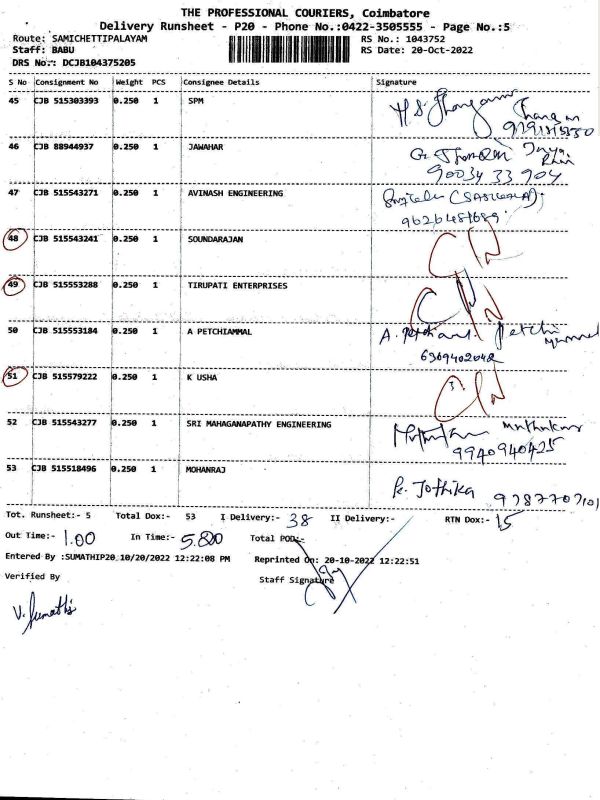 THE PROFESSIONAL COURIERS, Coimbatore
Delivery Runsheet - P20 - Phone No.:0422-3505555 - Page No.:5
Route: SAMICHETTIPALAYAM RS No.: 1043752
Staff: BABU RS Date: 20-Oct-2022
DRS No.: DCJB104375205
S No Consignment No Weight PCS Consignee Details Signature
45 CJB 515303393 0.250 1 SPM
46 CJB 88944937 0.250 1 JAWAHAR
90034 33 904
47 CJB 515543271 0.250 1 AVINASH ENGINEERING
48 CJB 515543241 0.250 1 SOUNDARAJAN
49 CJB 515553288 0.250 1 TIRUPATI ENTERPRISES
50 CJB 515553184 0.250 1 A PETCHIAMMAL
6369402042
51 CJB 515579222 0.250 1 K USHA
52 CJB 515543277 0.250 1 SRI MAHAGANAPATHY ENGINEERING
9940940425
53 CJB 515518496 0.250 1 MOHANRAJ R. Jothika 9787707101
Tot. Runsheet:- 5 Total Dox:- 53 I Delivery:- 38 II Delivery:- RTN Dox:- 15
Out Time:- 1.00 In Time:- Total POD:-
Entered By :SUMATHIP20 10/20/2022 12:22:08 PM Reprinted On: 20-10-2022 12:22:51
Verified By Staff Signature
V. Sumathi